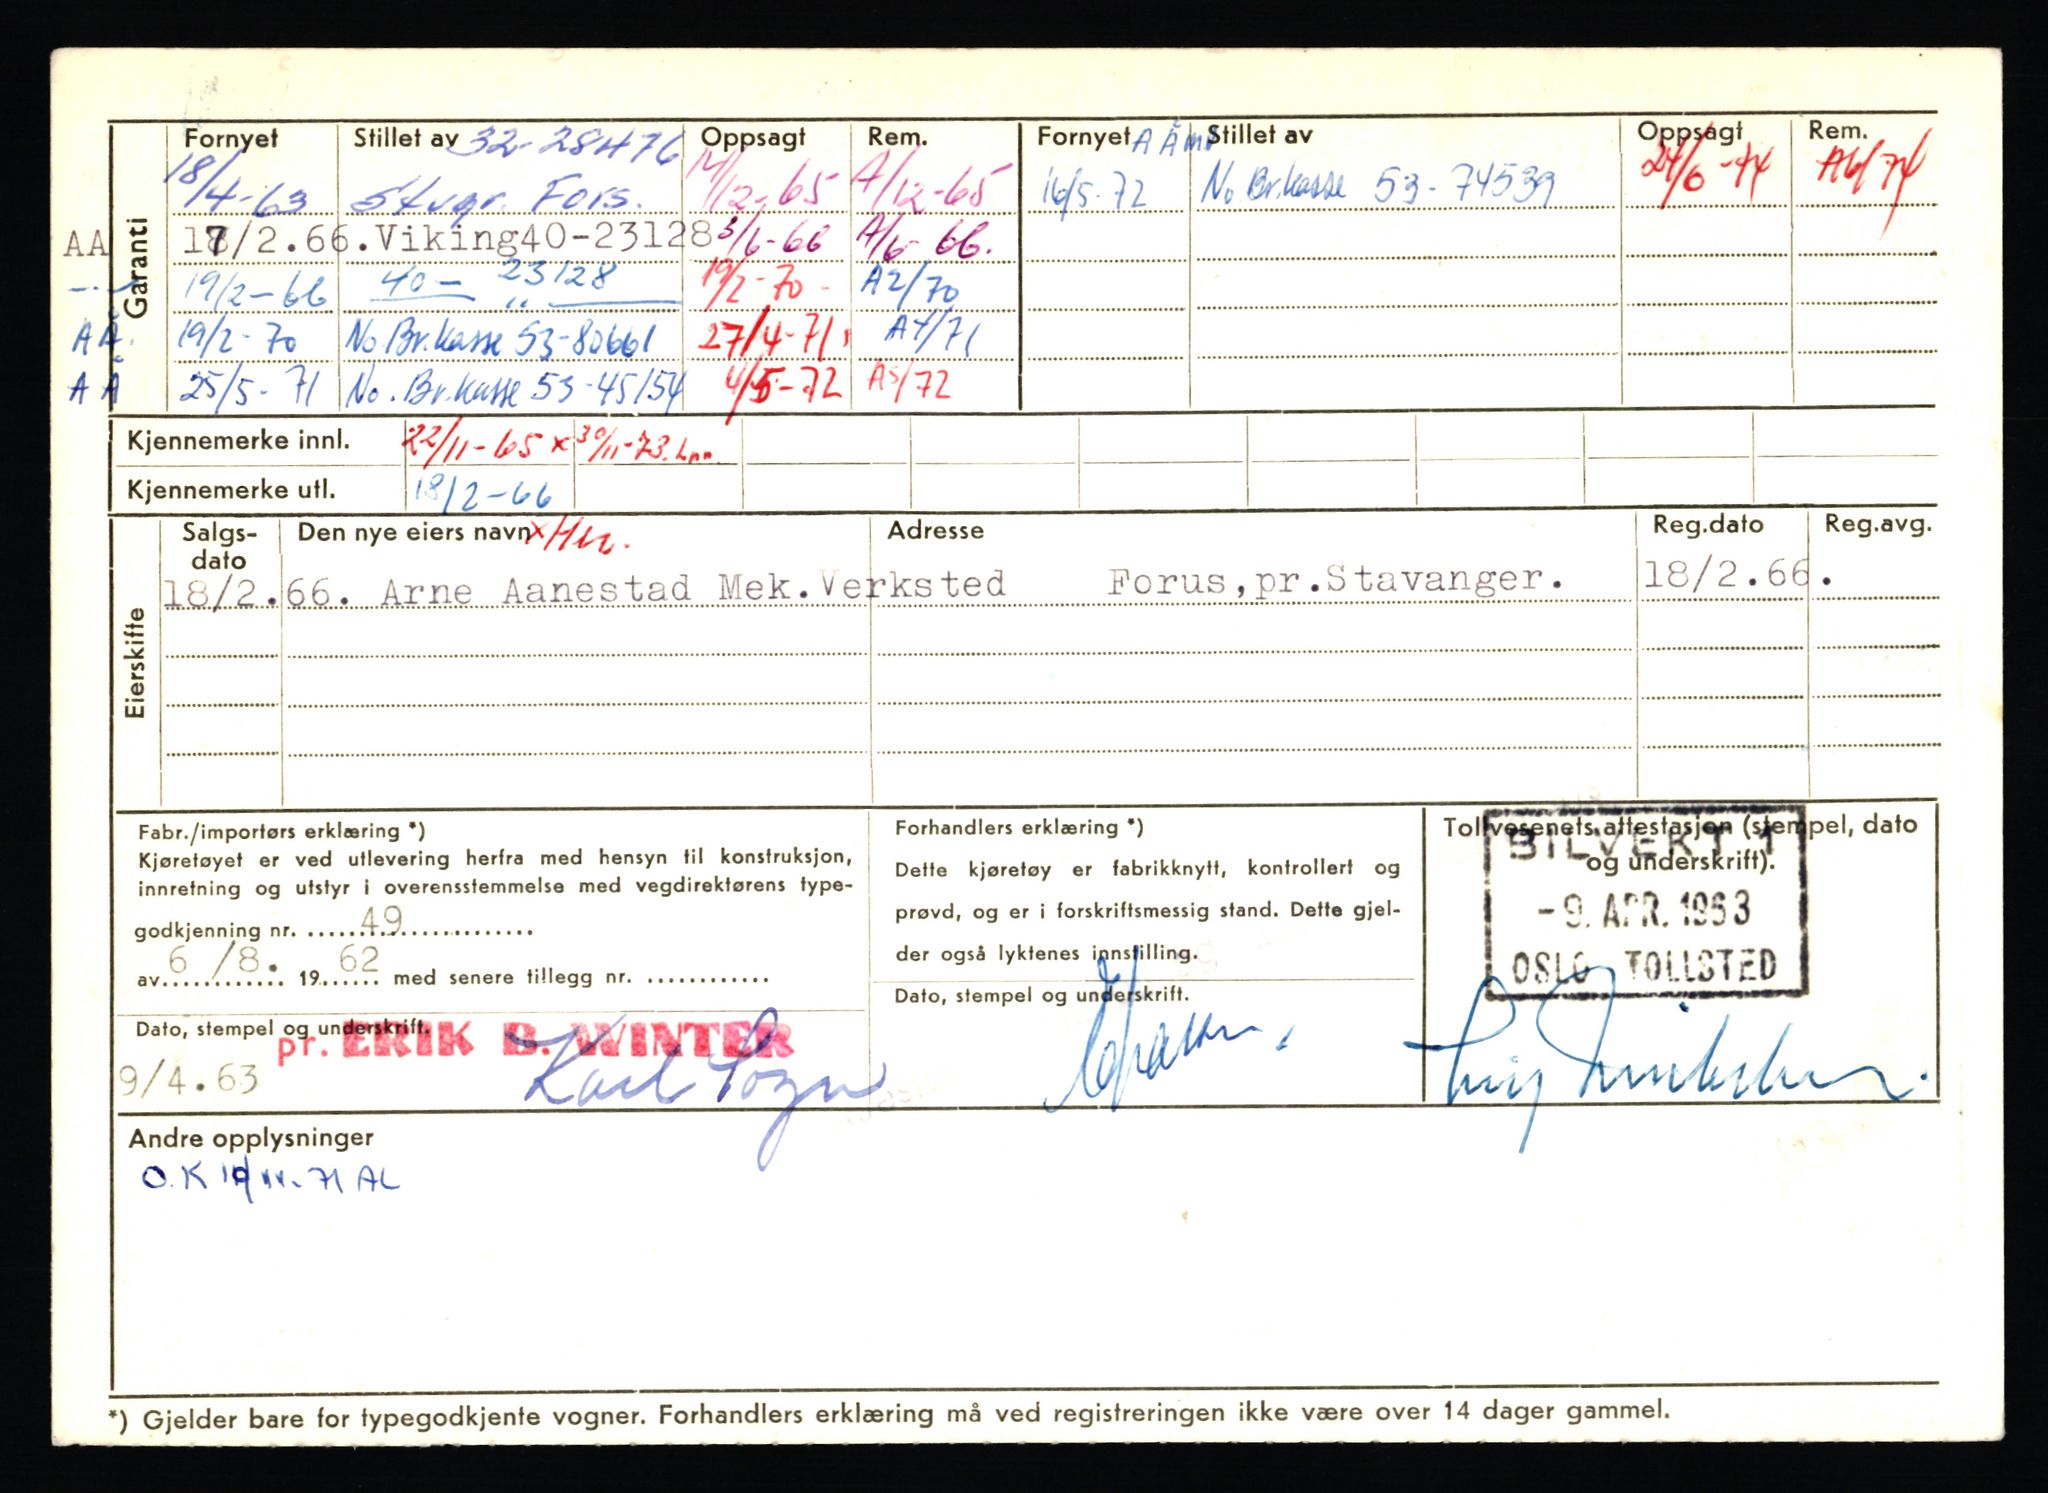 Garanti
Fornyet Stillet av 32-28476 Oppsagt Rem. Fornyet Stillet av Oppsagt Rem.
18/4-63 Stvgr. Fors. 12-65 A/12-65 16/5-72 No Br.kasse 53-74539 24/6-74 A6/74
AA 17/2.66. Viking40-23128 3/6-66 A/6-66.
19/2-66 40- 23128 19/2-70- A2/70
AÅ. 19/2-70 No Br.kasse 53-80661 27/4-71 A4/71
AÅ 25/5-71 No. Br.kasse 53-45154 4/5-72 A5/72
Kjennemerke innl. 22/11-65 x 30/11-73.
Kjennemerke utl. 18/2-66
Eierskifte
Salgs-dato Den nye eiers navn x Adresse Reg.dato Reg.avg.
18/2.66. Arne Aanestad Mek.Verksted Forus,pr.Stavanger. 18/2.66.
Fabr./importørs erklæring *)
Kjøretøyet er ved utlevering herfra med hensyn til konstruksjon,
innretning og utstyr i overensstemmelse med vegdirektørens type-
godkjenning nr. ......49..............
av 6 /8. 19 62 med senere tillegg nr. ............
Dato, stempel og underskrift.
pr. ERIK B. WINTER
9/4.63
Forhandlers erklæring *)
Dette kjøretøy er fabrikknytt, kontrollert og
prøvd, og er i forskriftsmessig stand. Dette gjel-
der også lyktenes innstilling.
Dato, stempel og underskrift.
Tollvesenets attestasjon (stempel, dato
og underskrift).
BILVEKT 1
-9. APR. 1963
OSLO TOLLSTED
Andre opplysninger
O.K 71 AL
*) Gjelder bare for typegodkjente vogner. Forhandlers erklæring må ved registreringen ikke være over 14 dager gammel.